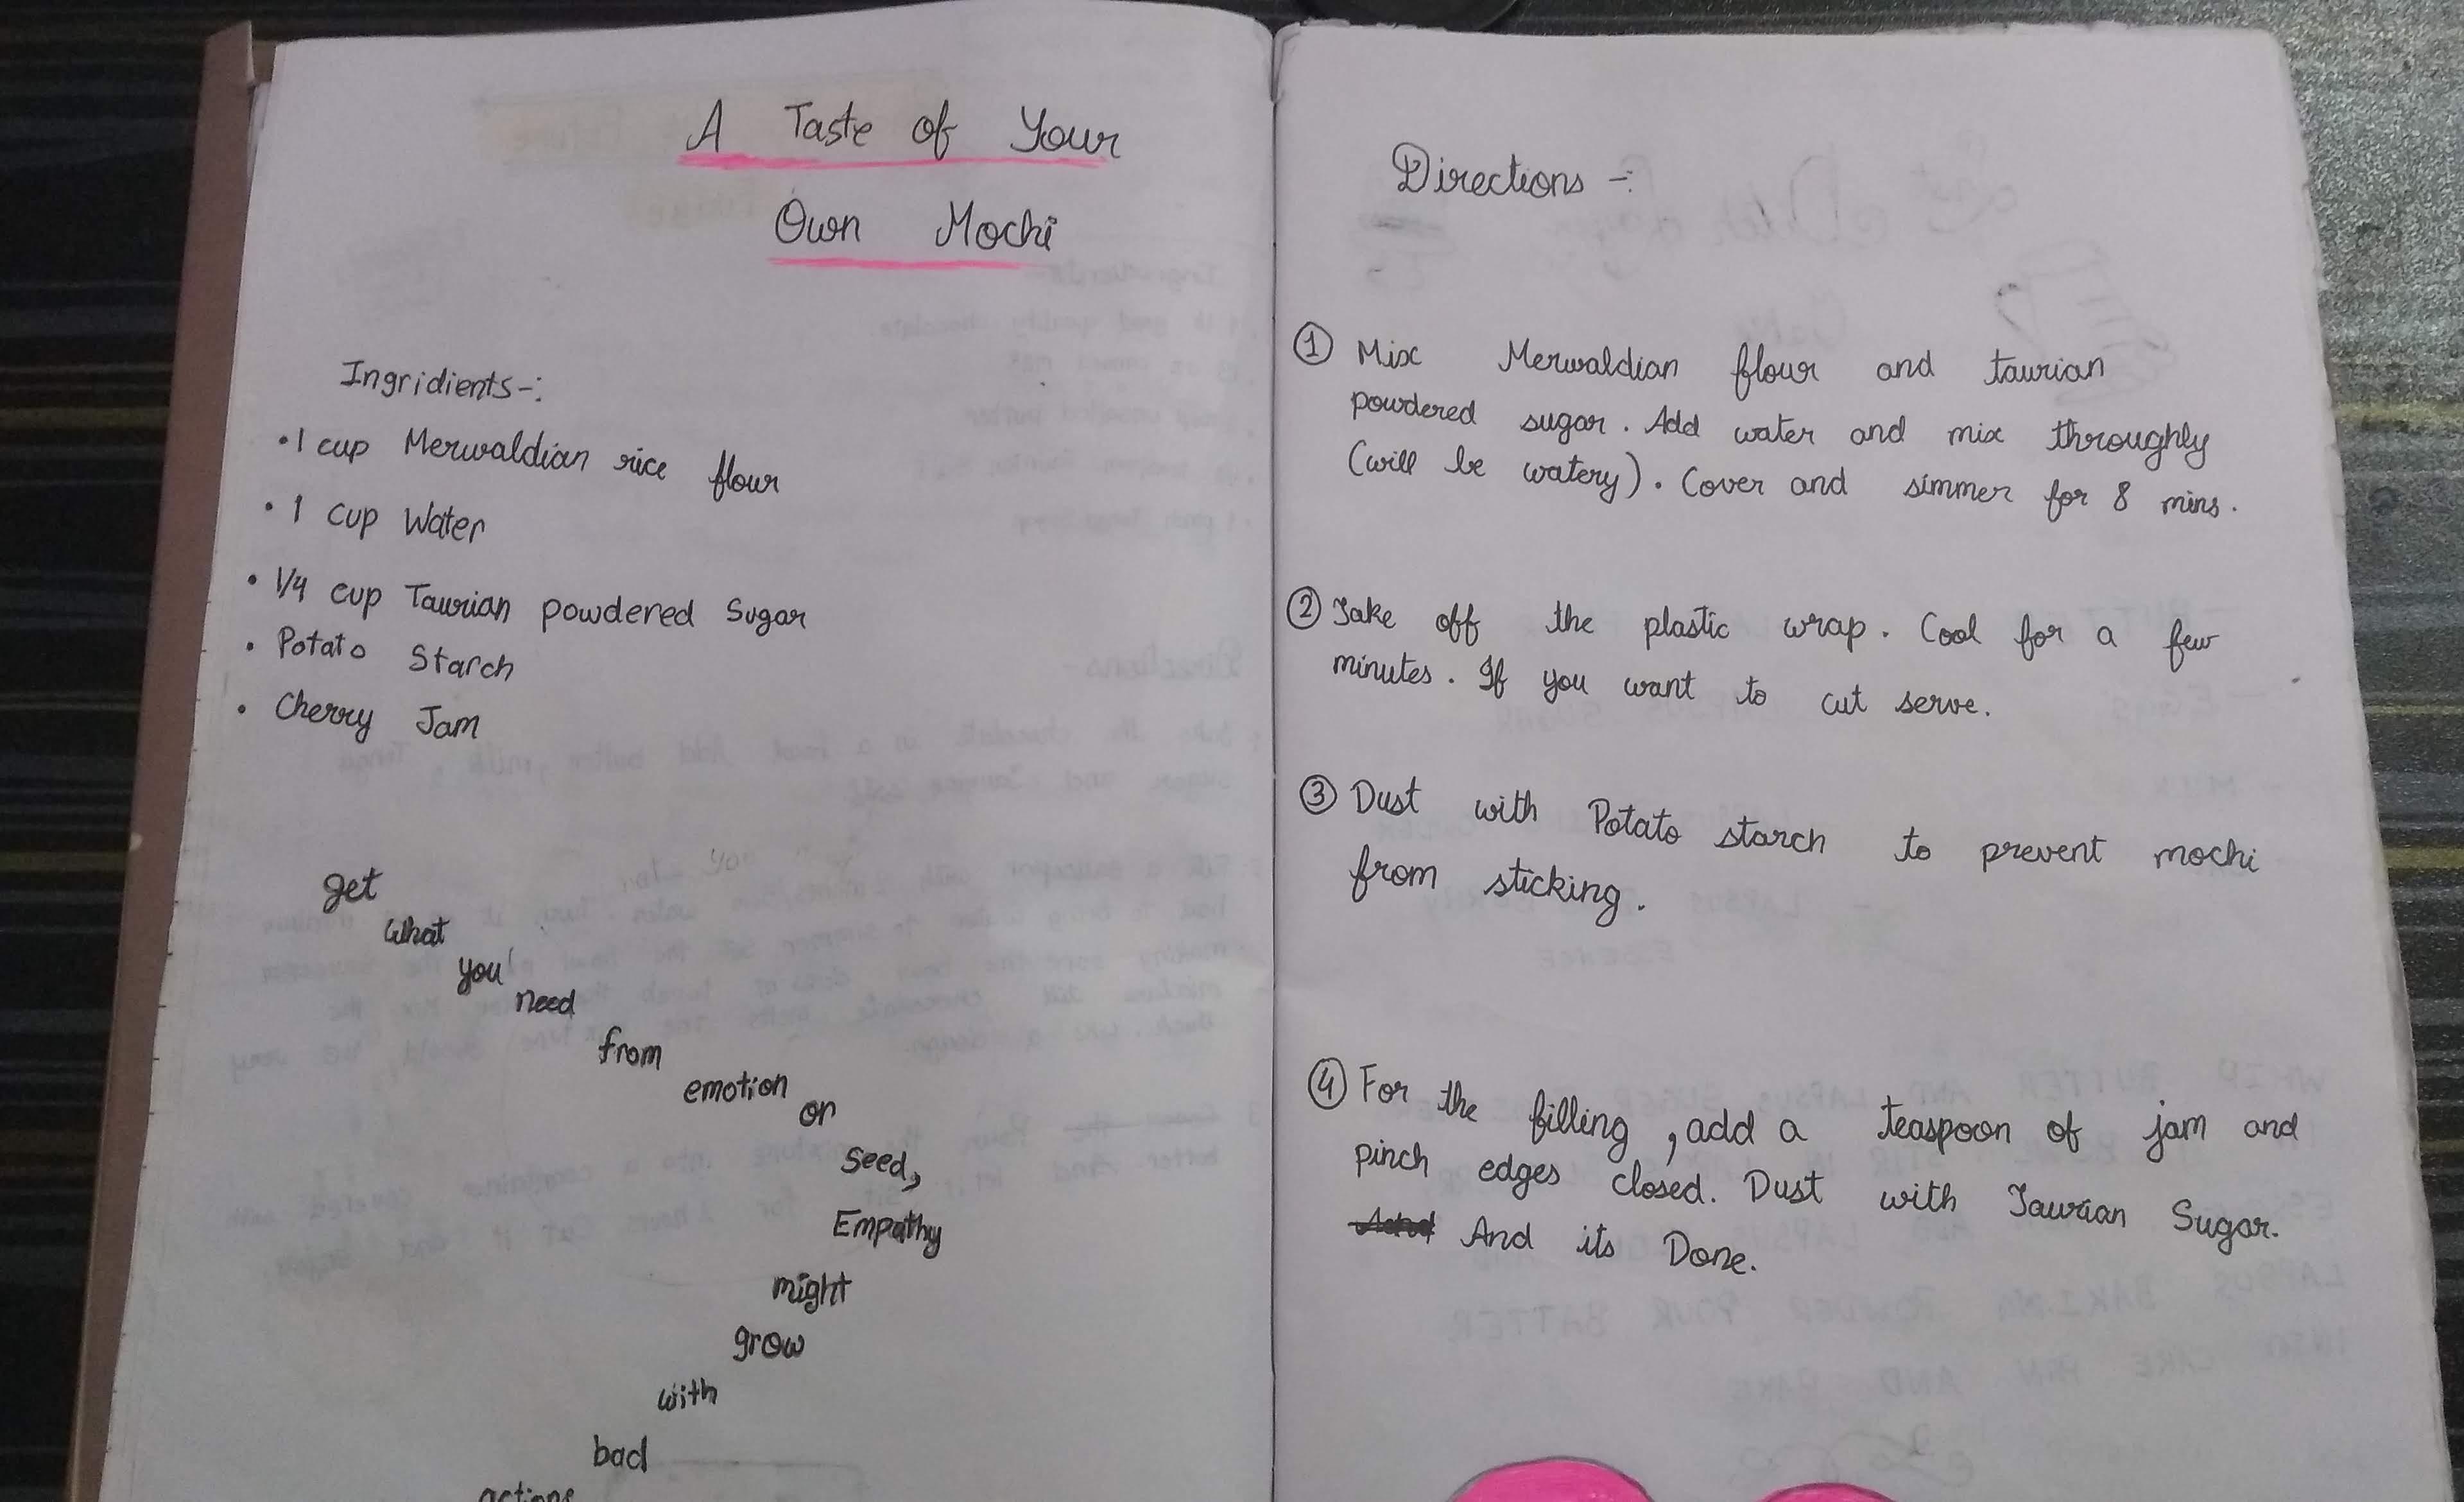 A Taste of Your
Own Mochi
Ingridients-:
• 1 cup Merwaldian rice flour
• 1 cup Water
• 1/4 cup Taurian powdered Sugar
• Potato Starch
• Cherry Jam
get
what
you
need
from
emotion
or
seed,
Empathy
might
grow
with
bad
actions
Directions -:
① Mix Merwaldian flour and taurian
powdered sugar. Add water and mix throughly
(will be watery). Cover and simmer for 8 mins.
② Take off the plastic wrap. Cool for a few
minutes. If you want to cut serve.
③ Dust with Potato starch to prevent mochi
from sticking.
④ For the filling, add a teaspoon of jam and
pinch edges closed. Dust with Taurian Sugar.
And its Done.